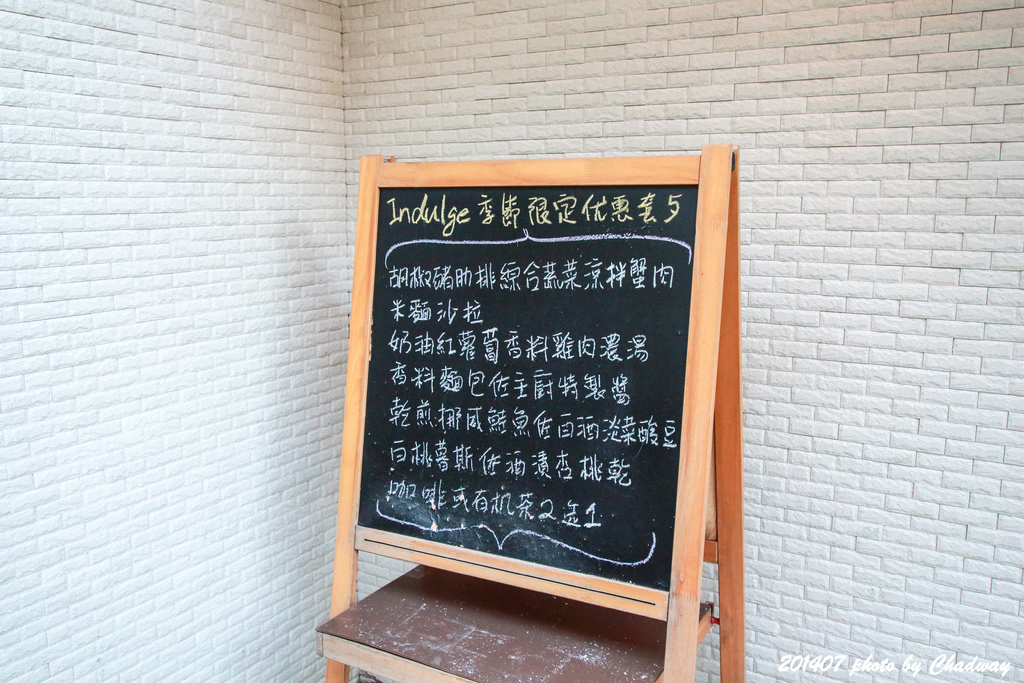 Indulge 季節限定优惠套5
胡椒豬肋排綜合蔬菜涼拌蟹肉
米麵沙拉
奶油紅蘿蔔香料雞肉濃湯
香料麵包佐主廚特製醬
乾煎挪威鮭魚佐白酒淡菜酸豆
白桃慕斯佐酒漬杏桃乾
咖啡或有机茶2选1
201407 photo by Chadway